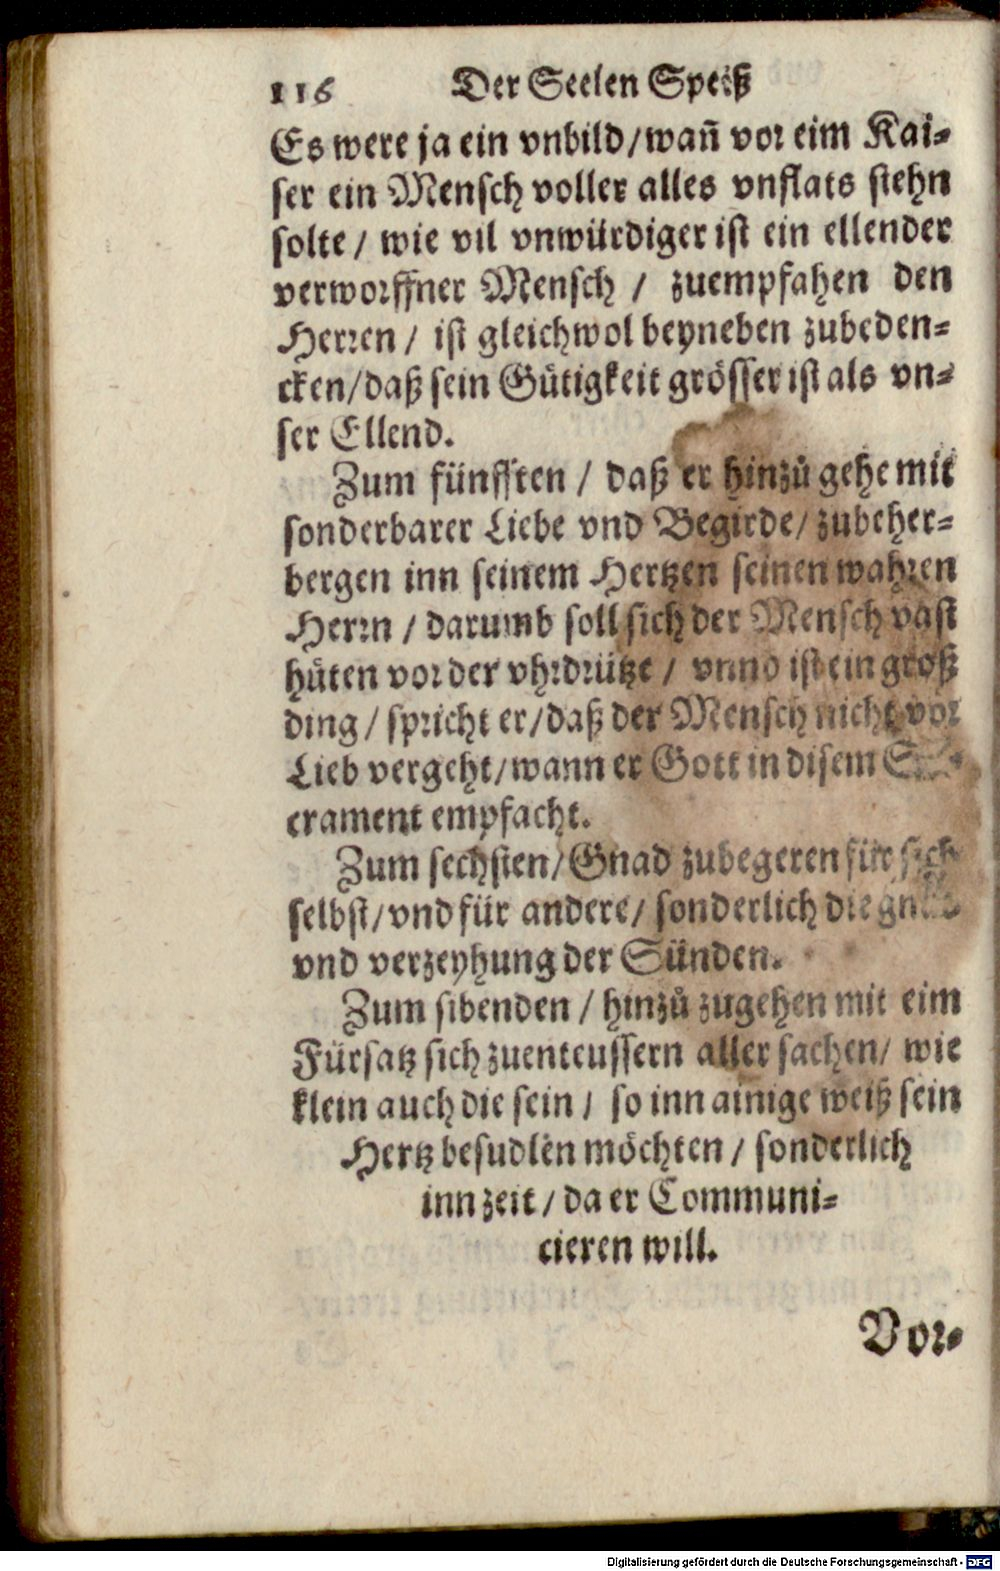 116 Der Seelen Speiß
Es were ja ein vnbild/wañ vor eim Kai⸗
ser ein Mensch voller alles vnflats stehn
solte / wie vil vnwürdiger ist ein ellender
verworffner Mensch / zuempfahen den
Herren / ist gleichwol beyneben zubeden⸗
cken/daß sein Gütigkeit grösser ist als vn⸗
ser Ellend.
Zum fünfften / daß er hinzů gehe mit
sonderbarer Liebe vnd Begirde/ zubeher⸗
bergen inn seinem Hertzen seinen wahren
Herrn / darumb soll sich der Mensch vast
hüten vor der vhrdrütze / vnnd ist ein groß
ding / spricht er/daß der Mensch nicht vor
Lieb vergeht/wann er Gott in disem
crament empfacht.
Zum sechsten/Gnad zubegeren für sich
selbst/vnd für andere/ sonderlich die
vnd verzeyhung der Sünden.
Zum sibenden / hinzů zugehen mit eim
Fürsatz sich zuenteussern aller sachen/ wie
klein auch die sein / so inn ainige weiß sein
Hertz besudlen möchten / sonderlich
inn zeit / da er Communi⸗
cieren will.
Vor⸗
Digitalisierung gefördert durch die Deutsche Forschungsgemeinschaft - DFG